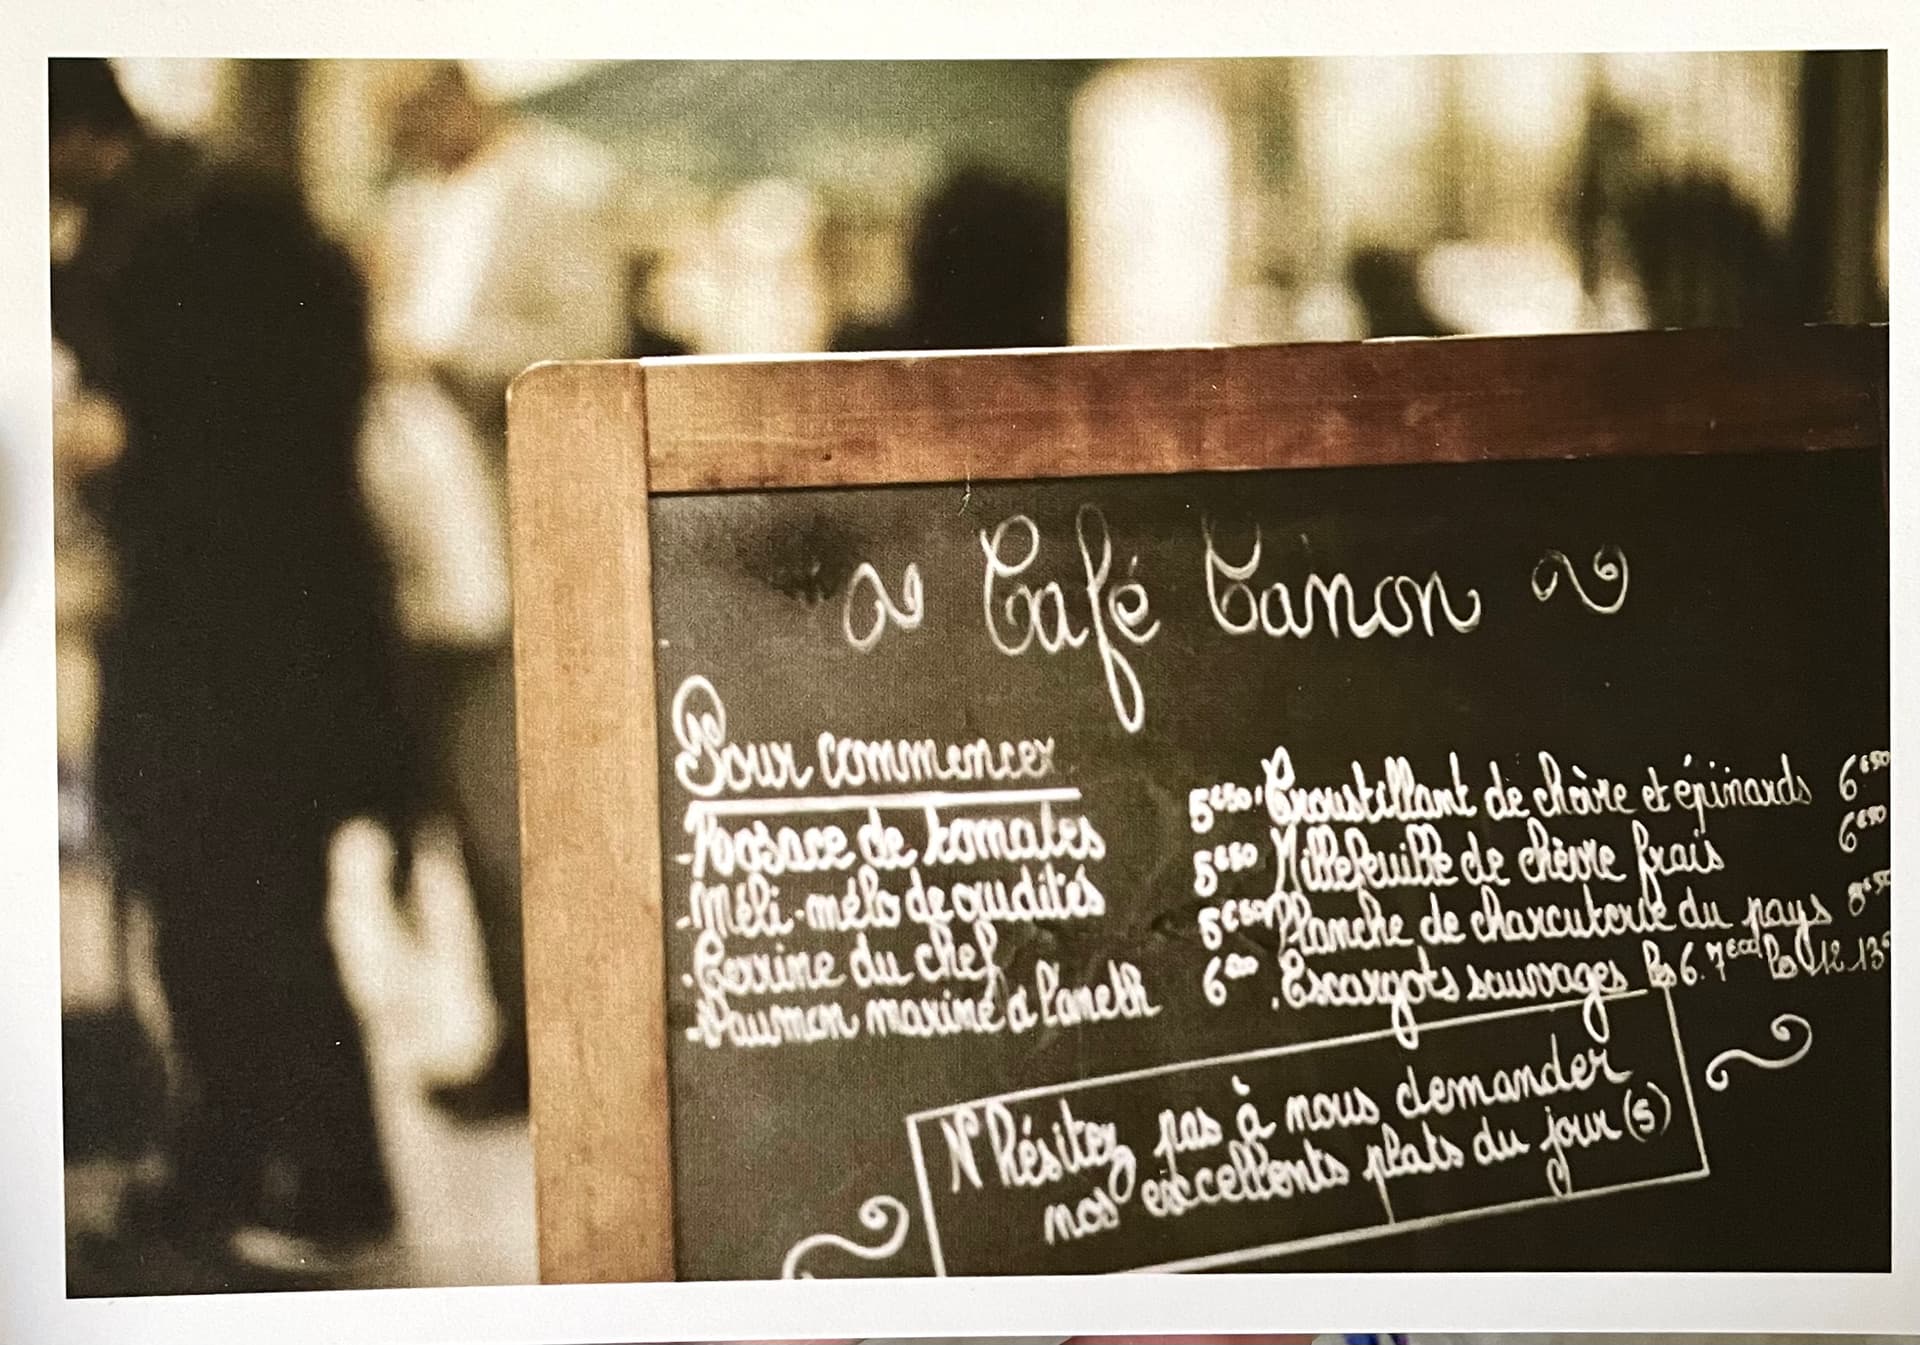 Café Canon
Pour commencer
- Rosace de tomates 5€50
- Méli-mélo de crudités 5€50
- Terrine du chef 5€50
- Saumon mariné à l'aneth 6€20
- Croustillant de chèvre et épinards 6€50
- Millefeuille de chèvre frais 6€90
- Planche de charcuterie du pays 8€50
- Escargots sauvages les 6. 7€ les 12 13€
N'hésitez pas à nous demander
nos excellents plats du jour(s)